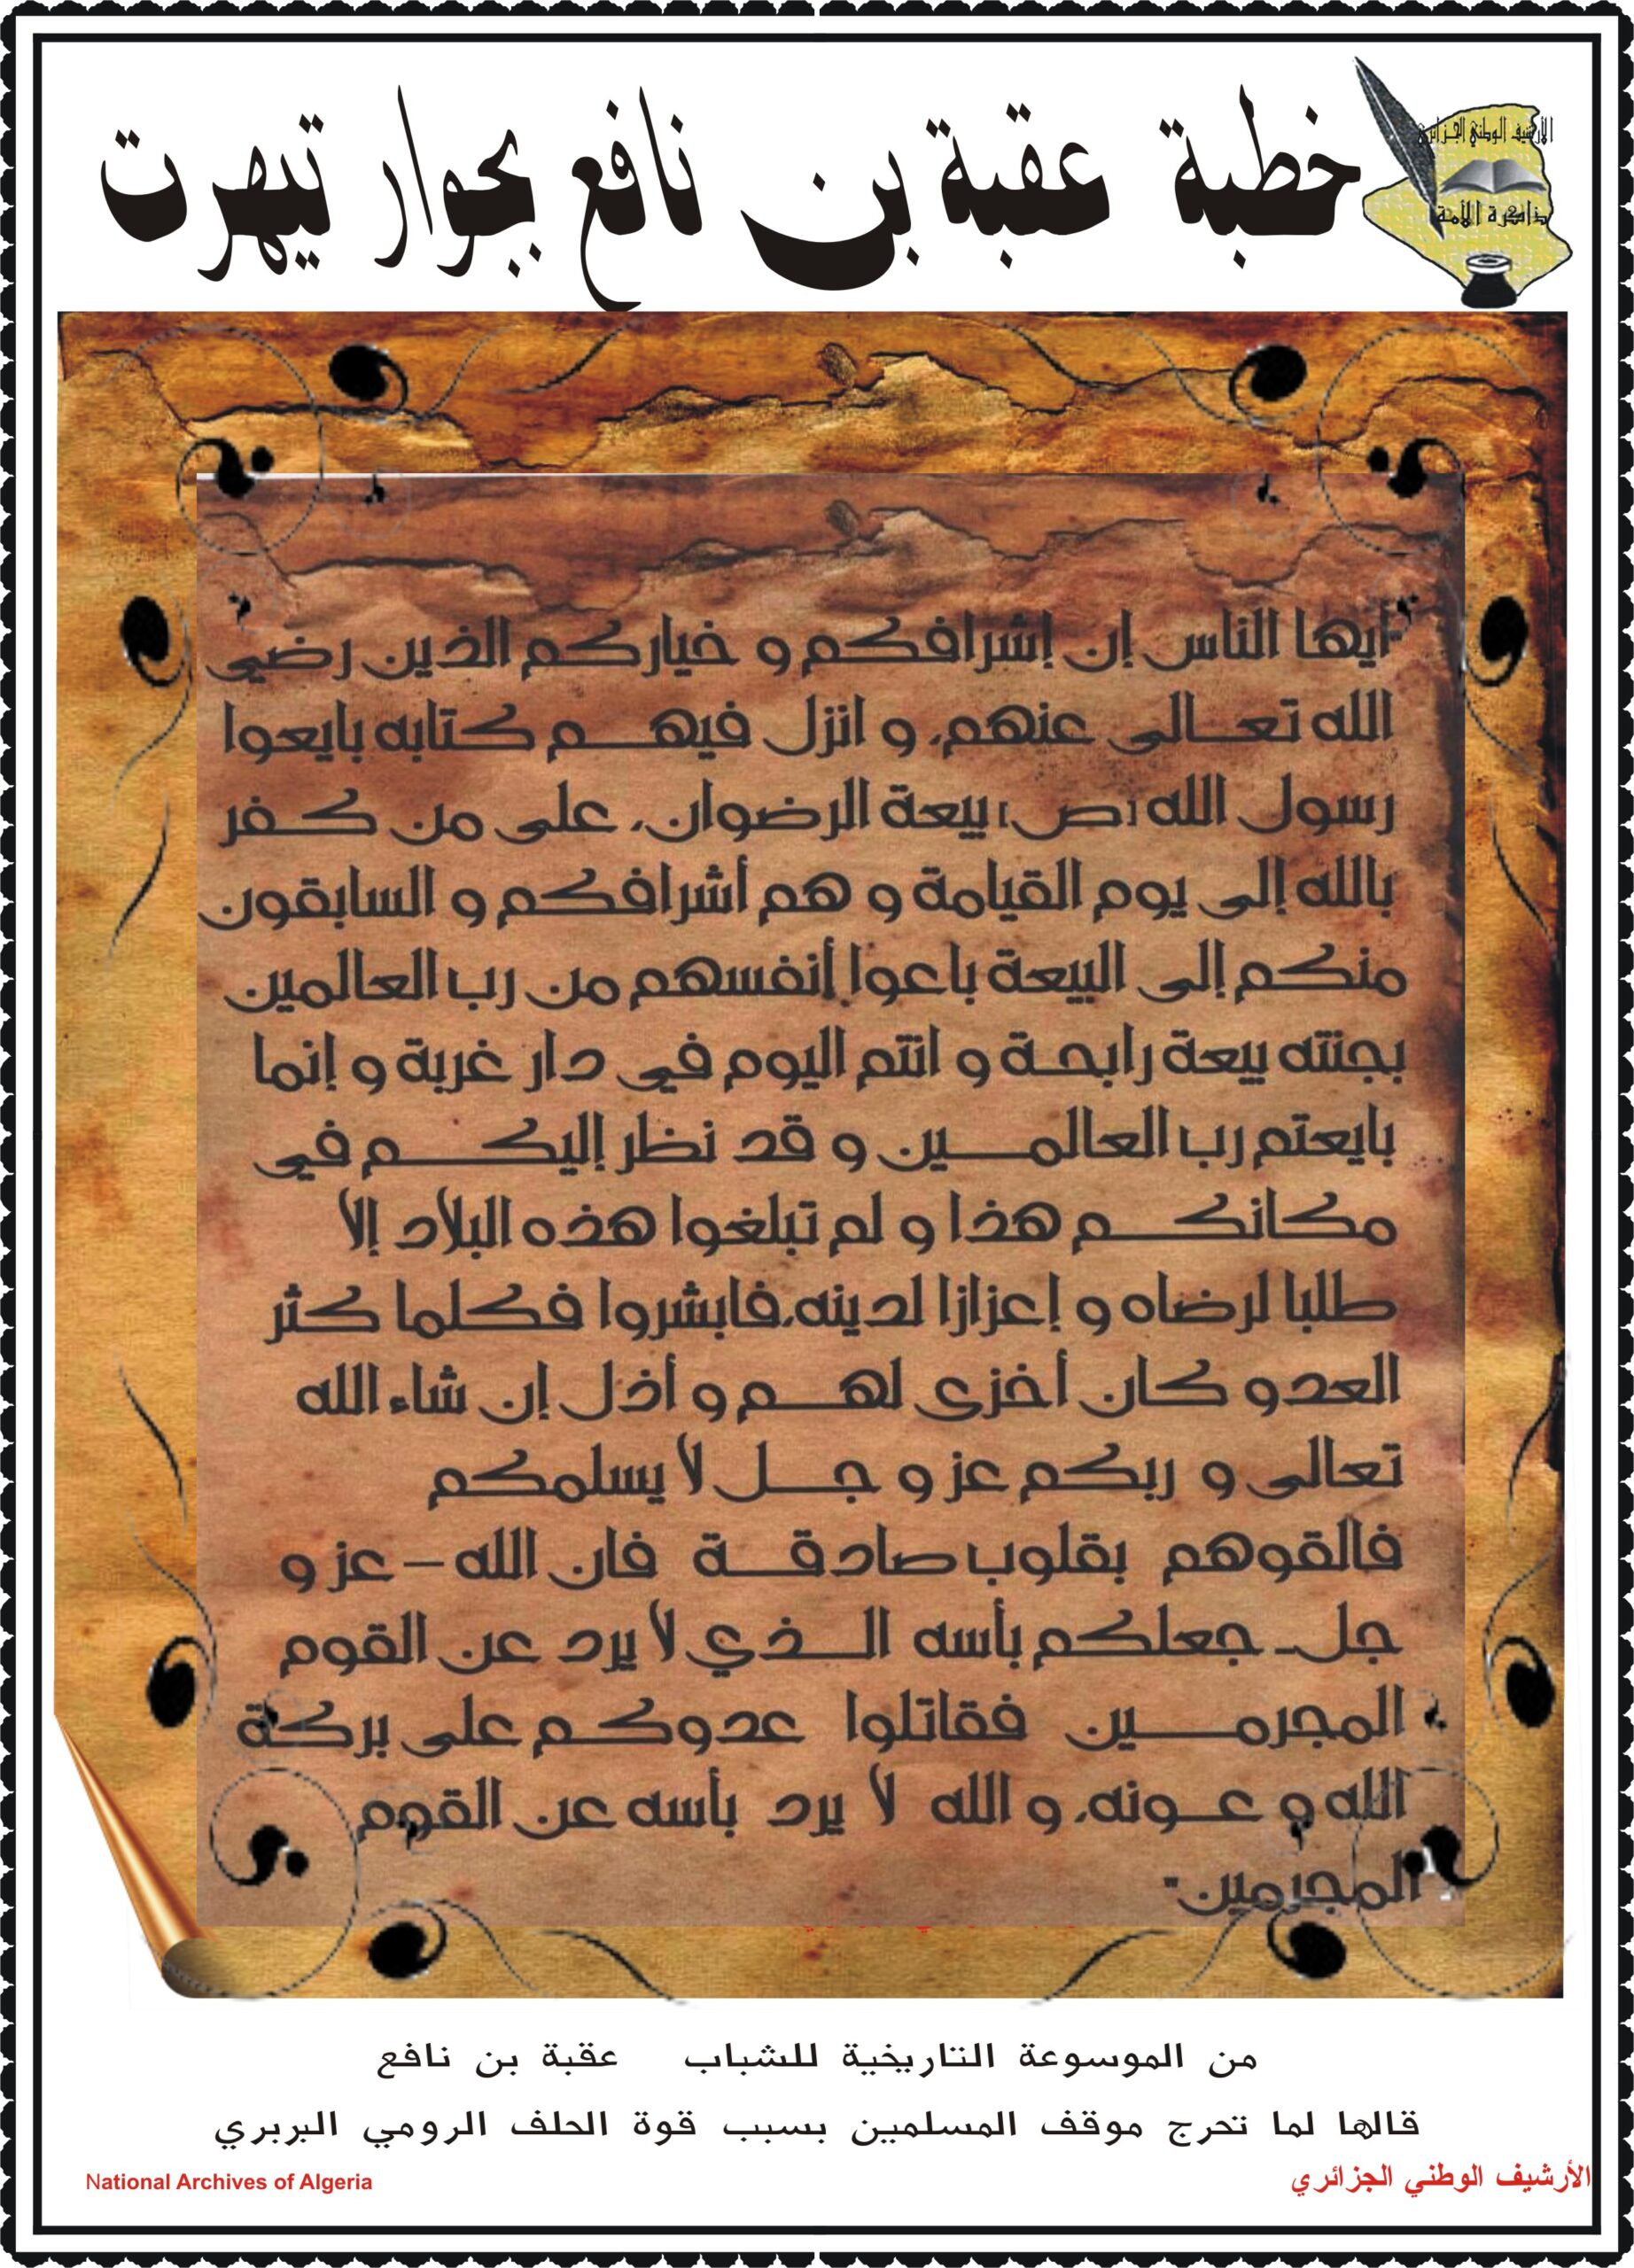 خطبة عقبة بن نافع بجوار تيهرت
الأرشيف الوطني الجزائري
ذاكرة الأمة
"أيها الناس إن إشرافكم و خياركم الذين رضي
الله تعالى عنهم، و انزل فيهم كتابه بايعوا
رسول الله [ص] بيعة الرضوان، على من كفر
بالله إلى يوم القيامة و هم أشرافكم و السابقون
منكم إلى البيعة باعوا أنفسهم من رب العالمين
بجنته بيعة رابحة و انتم اليوم في دار غربة و إنما
بايعتم رب العالمين و قد نظر إليكم في
مكانكم هذا و لم تبلغوا هذه البلاد إلا
طلبا لرضاه و إعزازا لدينه،فابشروا فكلما كثر
العدو كان أخزى لهم و أذل إن شاء الله
تعالى و ربكم عز و جل لا يسلمكم
فالقوهم بقلوب صادقة فان الله – عز و
جل- جعلكم بأسه الذي لا يرد عن القوم
المجرمين فقاتلوا عدوكم على بركة
الله و عونه، و الله لا يرد بأسه عن القوم
المجرمين"
من الموسوعة التاريخية للشباب عقبة بن نافع
قالها لما تحرج موقف المسلمين بسبب قوة الحلف الرومي البربري
National Archives of Algeria الأرشيف الوطني الجزائري